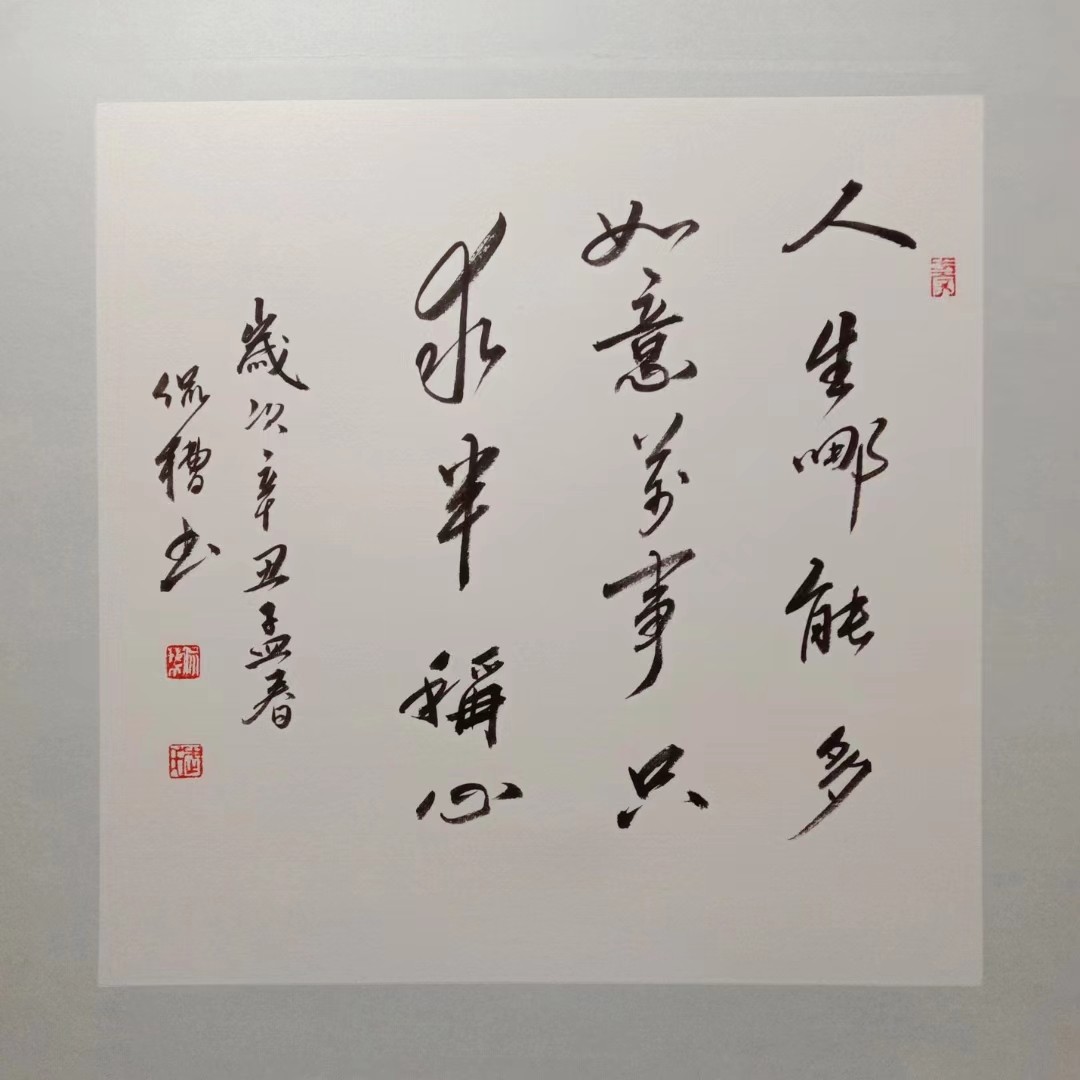 人生哪能多
如意萬事只
求半稱心
歲次辛丑孟春
侃糟书